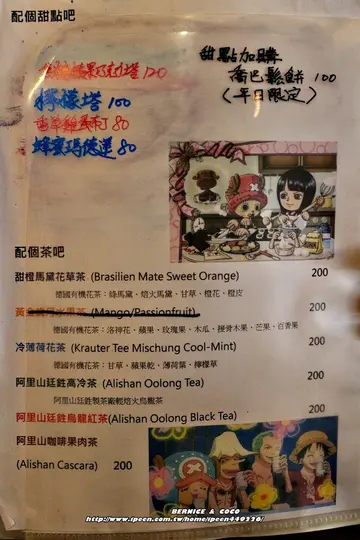 配個甜點吧
塔 120
檸檬塔 100
香草雞蛋布丁 80
蜂蜜瑪德蓮 80
甜點加購
喬巴鬆餅 100
(平日限定)
配個茶吧
甜橙馬黛花草茶 (Brasilien Mate Sweet Orange) 200
德國有機花茶：綠馬黛、焙火馬黛、甘草、橙花、橙皮
黃金 果茶 (Mango/Passionfruit) 200
德國有機花茶：洛神花、蘋果、玫瑰果、木瓜、接骨木果、芒果、百香果
冷薄荷花茶 (Krauter Tee Mischung Cool-Mint) 200
德國有機花茶：甘草、蘋果乾、薄荷葉、檸檬草
阿里山廷銼高冷茶 (Alishan Oolong Tea) 200
阿里山廷銼製茶廠輕焙火烏龍茶
阿里山廷銼烏龍紅茶(Alishan Oolong Black Tea) 200
阿里山咖啡果肉茶
(Alishan Cascara) 200
BERNICE & COCO
http://www.speen.com.tw/home/speen449226/